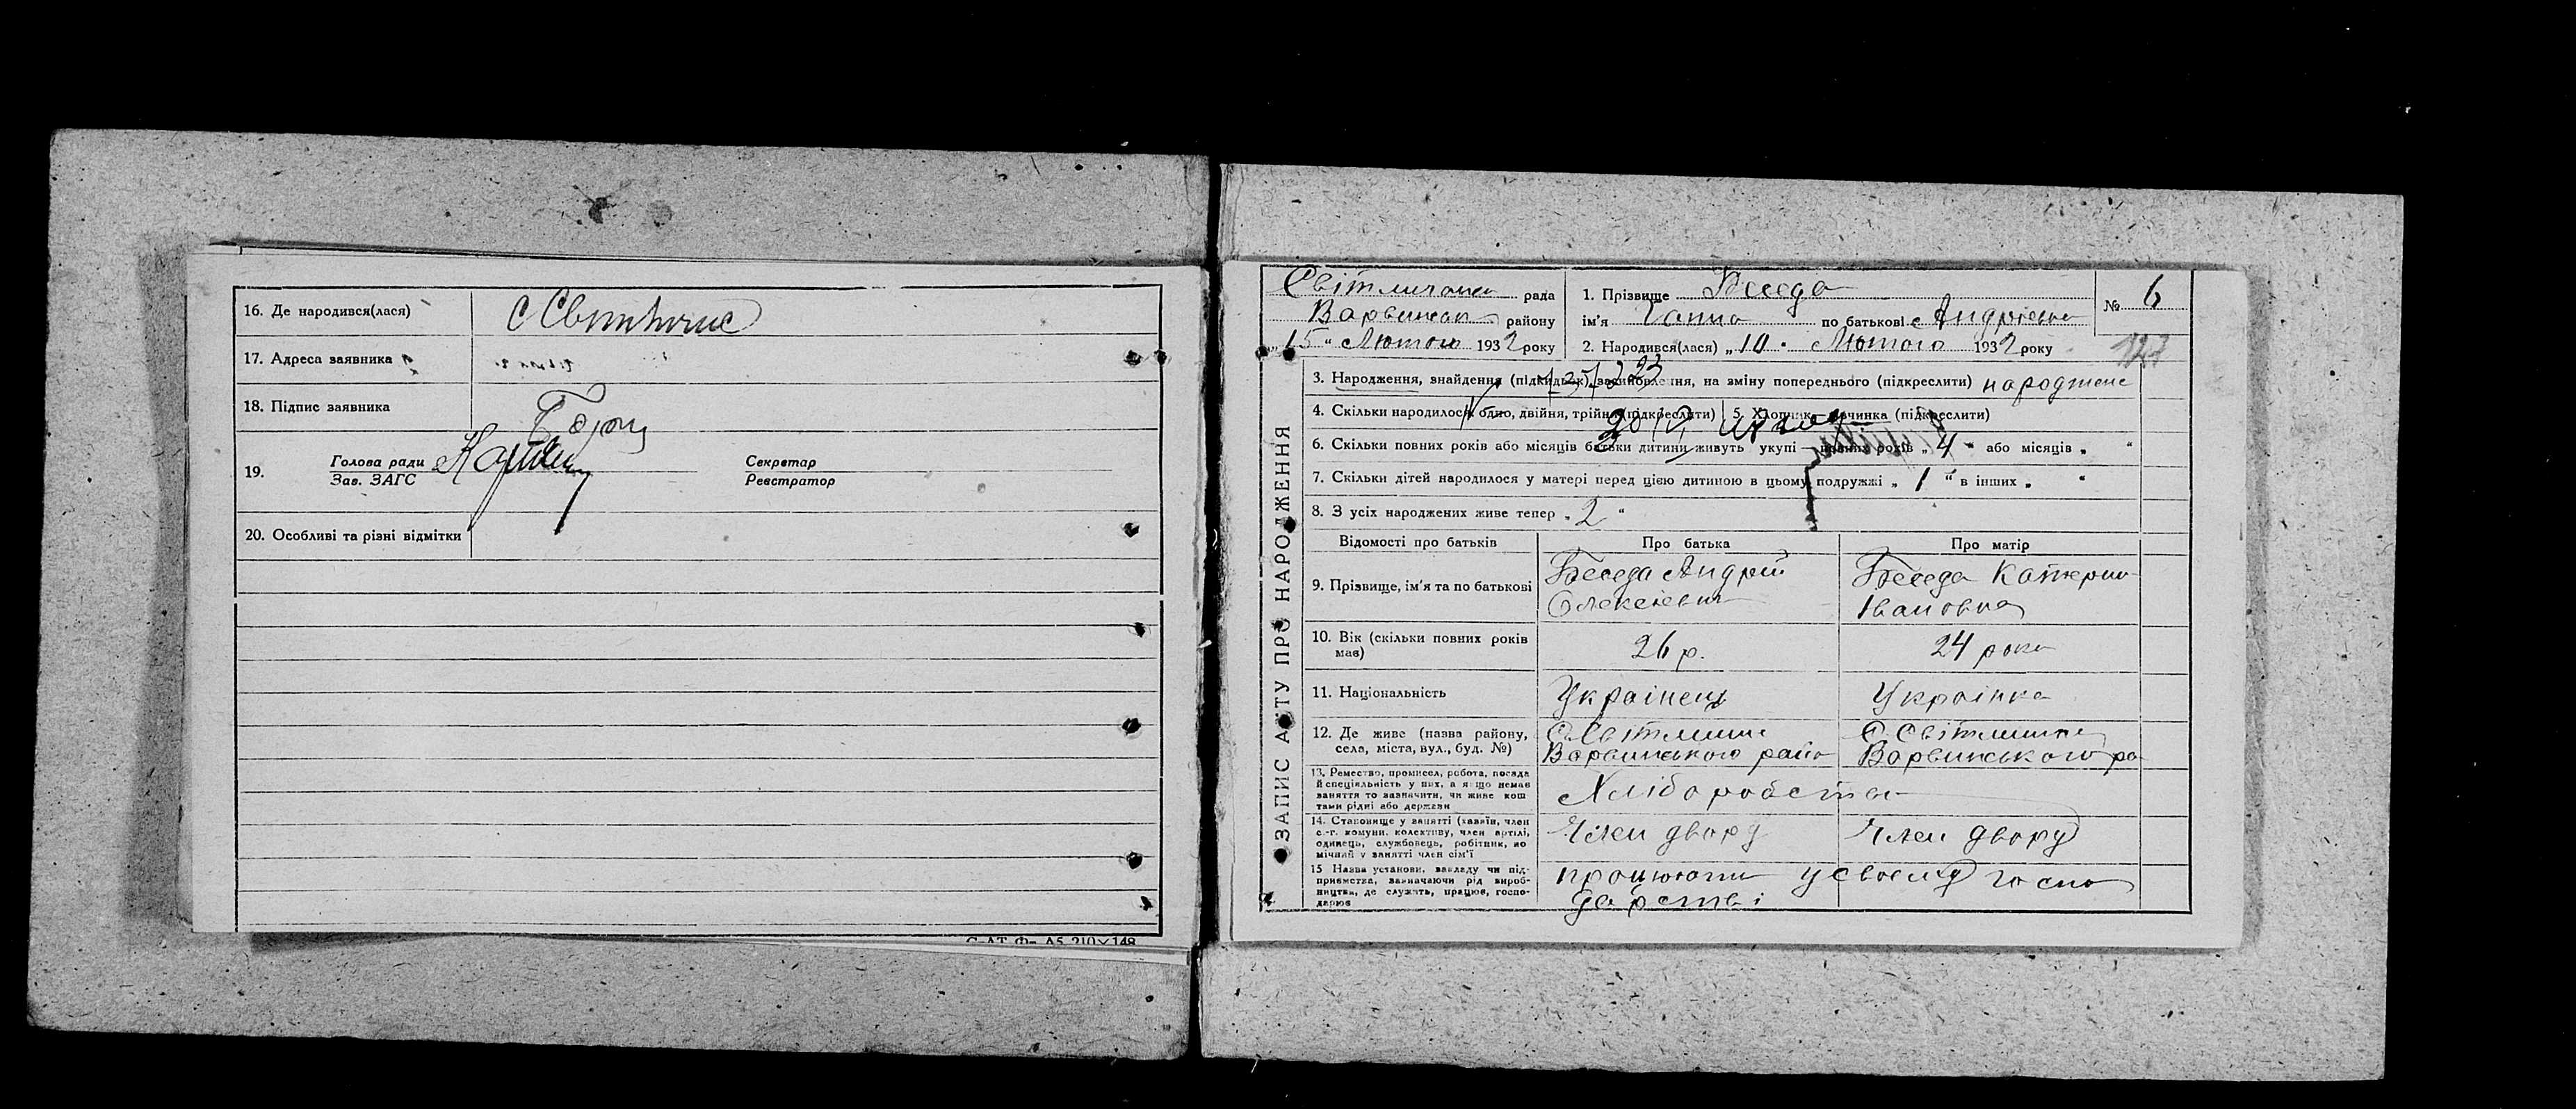 16. Де народився(лася)
с Світличне
17. Адреса заявника
18. Підпис заявника
19. Голова ради
Зав. ЗАГС
Секретар
Реєстратор
20. Особливі та різні відмітки
С-АТ Ф- А5 210×148
ЗАПИС АКТУ ПРО НАРОДЖЕННЯ
рада
району
„15“ Лютого 1932 року
1. Прізвище Беседа
ім'я Ганна по батькові Андріевна
2. Народився(лася) „10“ Лютого 1932 року
№ 6
127
3. Народження, знайдення (підкидьок) відновлення, на зміну попереднього (підкреслити) народжене
4. Скільки народилося: одно, двійня, трійня (підкреслити)
5. Хлопчик—дівчинка (підкреслити)
6. Скільки повних років або місяців батьки дитини живуть укупі — повних років „4“ або місяців „ “
7. Скільки дітей народилося у матері перед цією дитиною в цьому подружжі „1“ в інших „ “
8. З усіх народжених живе тепер „2“
Відомості про батьків
Про батька
Про матір
9. Прізвище, ім'я та по батькові
Беседа Андрій
Олексіевич
Беседа Катерина
Івановна
10. Вік (скільки повних років
має)
26 р.
24 роки
11. Національність
Українець
Українка
12. Де живе (назва району,
села, міста, вул., буд. №)
С. Світличне
Варвинського райо
С Світличне
Варвинського ра
13. Ремество, промисел, робота, посада
й спеціяльність у них, а якщо немає
заняття то зазначити, чи живе кош
тами рідні або держави
Хліборобство
14. Становище у занятті (хазяїн, член
с.-г. комуни, колективу, член артілі,
одинець, службовець, робітник, по
мічний у занятті член сім'ї
Член двору
Член двору
15 Назва установи, закладу чи під-
приємства, зазначаючи рід вироб-
ництва, де служить, працює, госпо-
дарює
працюють у своему госпо
дарстві